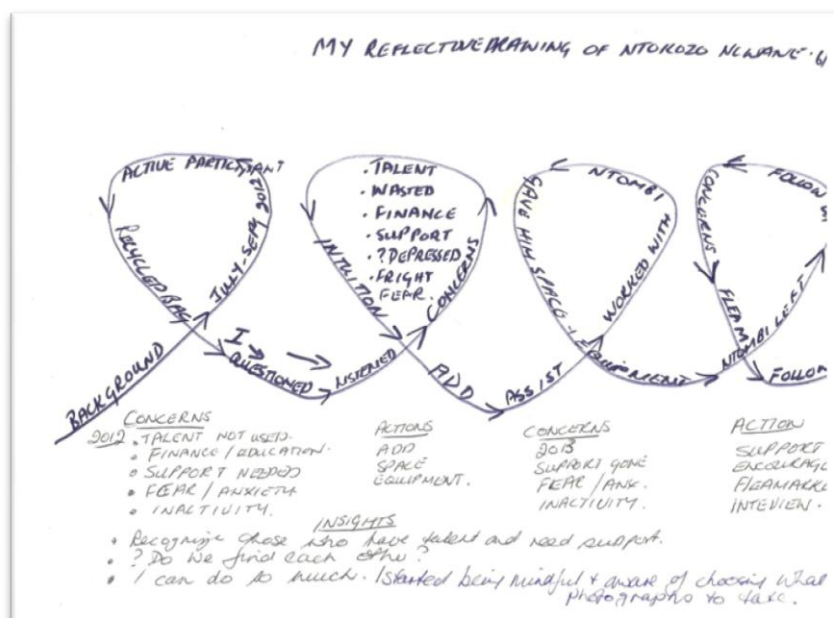 MY REFLECTIVE DRAWING OF NTOKOZO NCWANE.
ACTIVE PARTICIPANT
JULY-SEPT 2012
RECYCLED BAG
BACKGROUND
I →
QUESTIONED
LISTENED
CONCERNS
INTUITION
. TALENT
. WASTED
. FINANCE
. SUPPORT
. ?DEPRESSED
. FRIGHT
FEAR.
ADD
ASSIST
WORKED WITH
NTOMBI
GAVE HIM SPACE +
EQUIPMENT
NTOMBI LEFT
FOLLOW
CONCERNS
FLEAM
FOLLOW
CONCERNS
2012 . TALENT NOT USED.
• FINANCE / EDUCATION.
• SUPPORT NEEDED
• FEAR / ANXIETY
• INACTIVITY.
ACTIONS
ADD
SPACE
EQUIPMENT.
CONCERNS
2013
SUPPORT GONE
FEAR / ANX.
INACTIVITY.
ACTION
SUPPORT
ENCOURAGE
FLEAMARKE
INTEVIEW.
INSIGHTS
• Recognize those who have talent and need support.
• ? Do we find each other?
• I can do so much. I started being mindful + aware of choosing what
photographs to take.